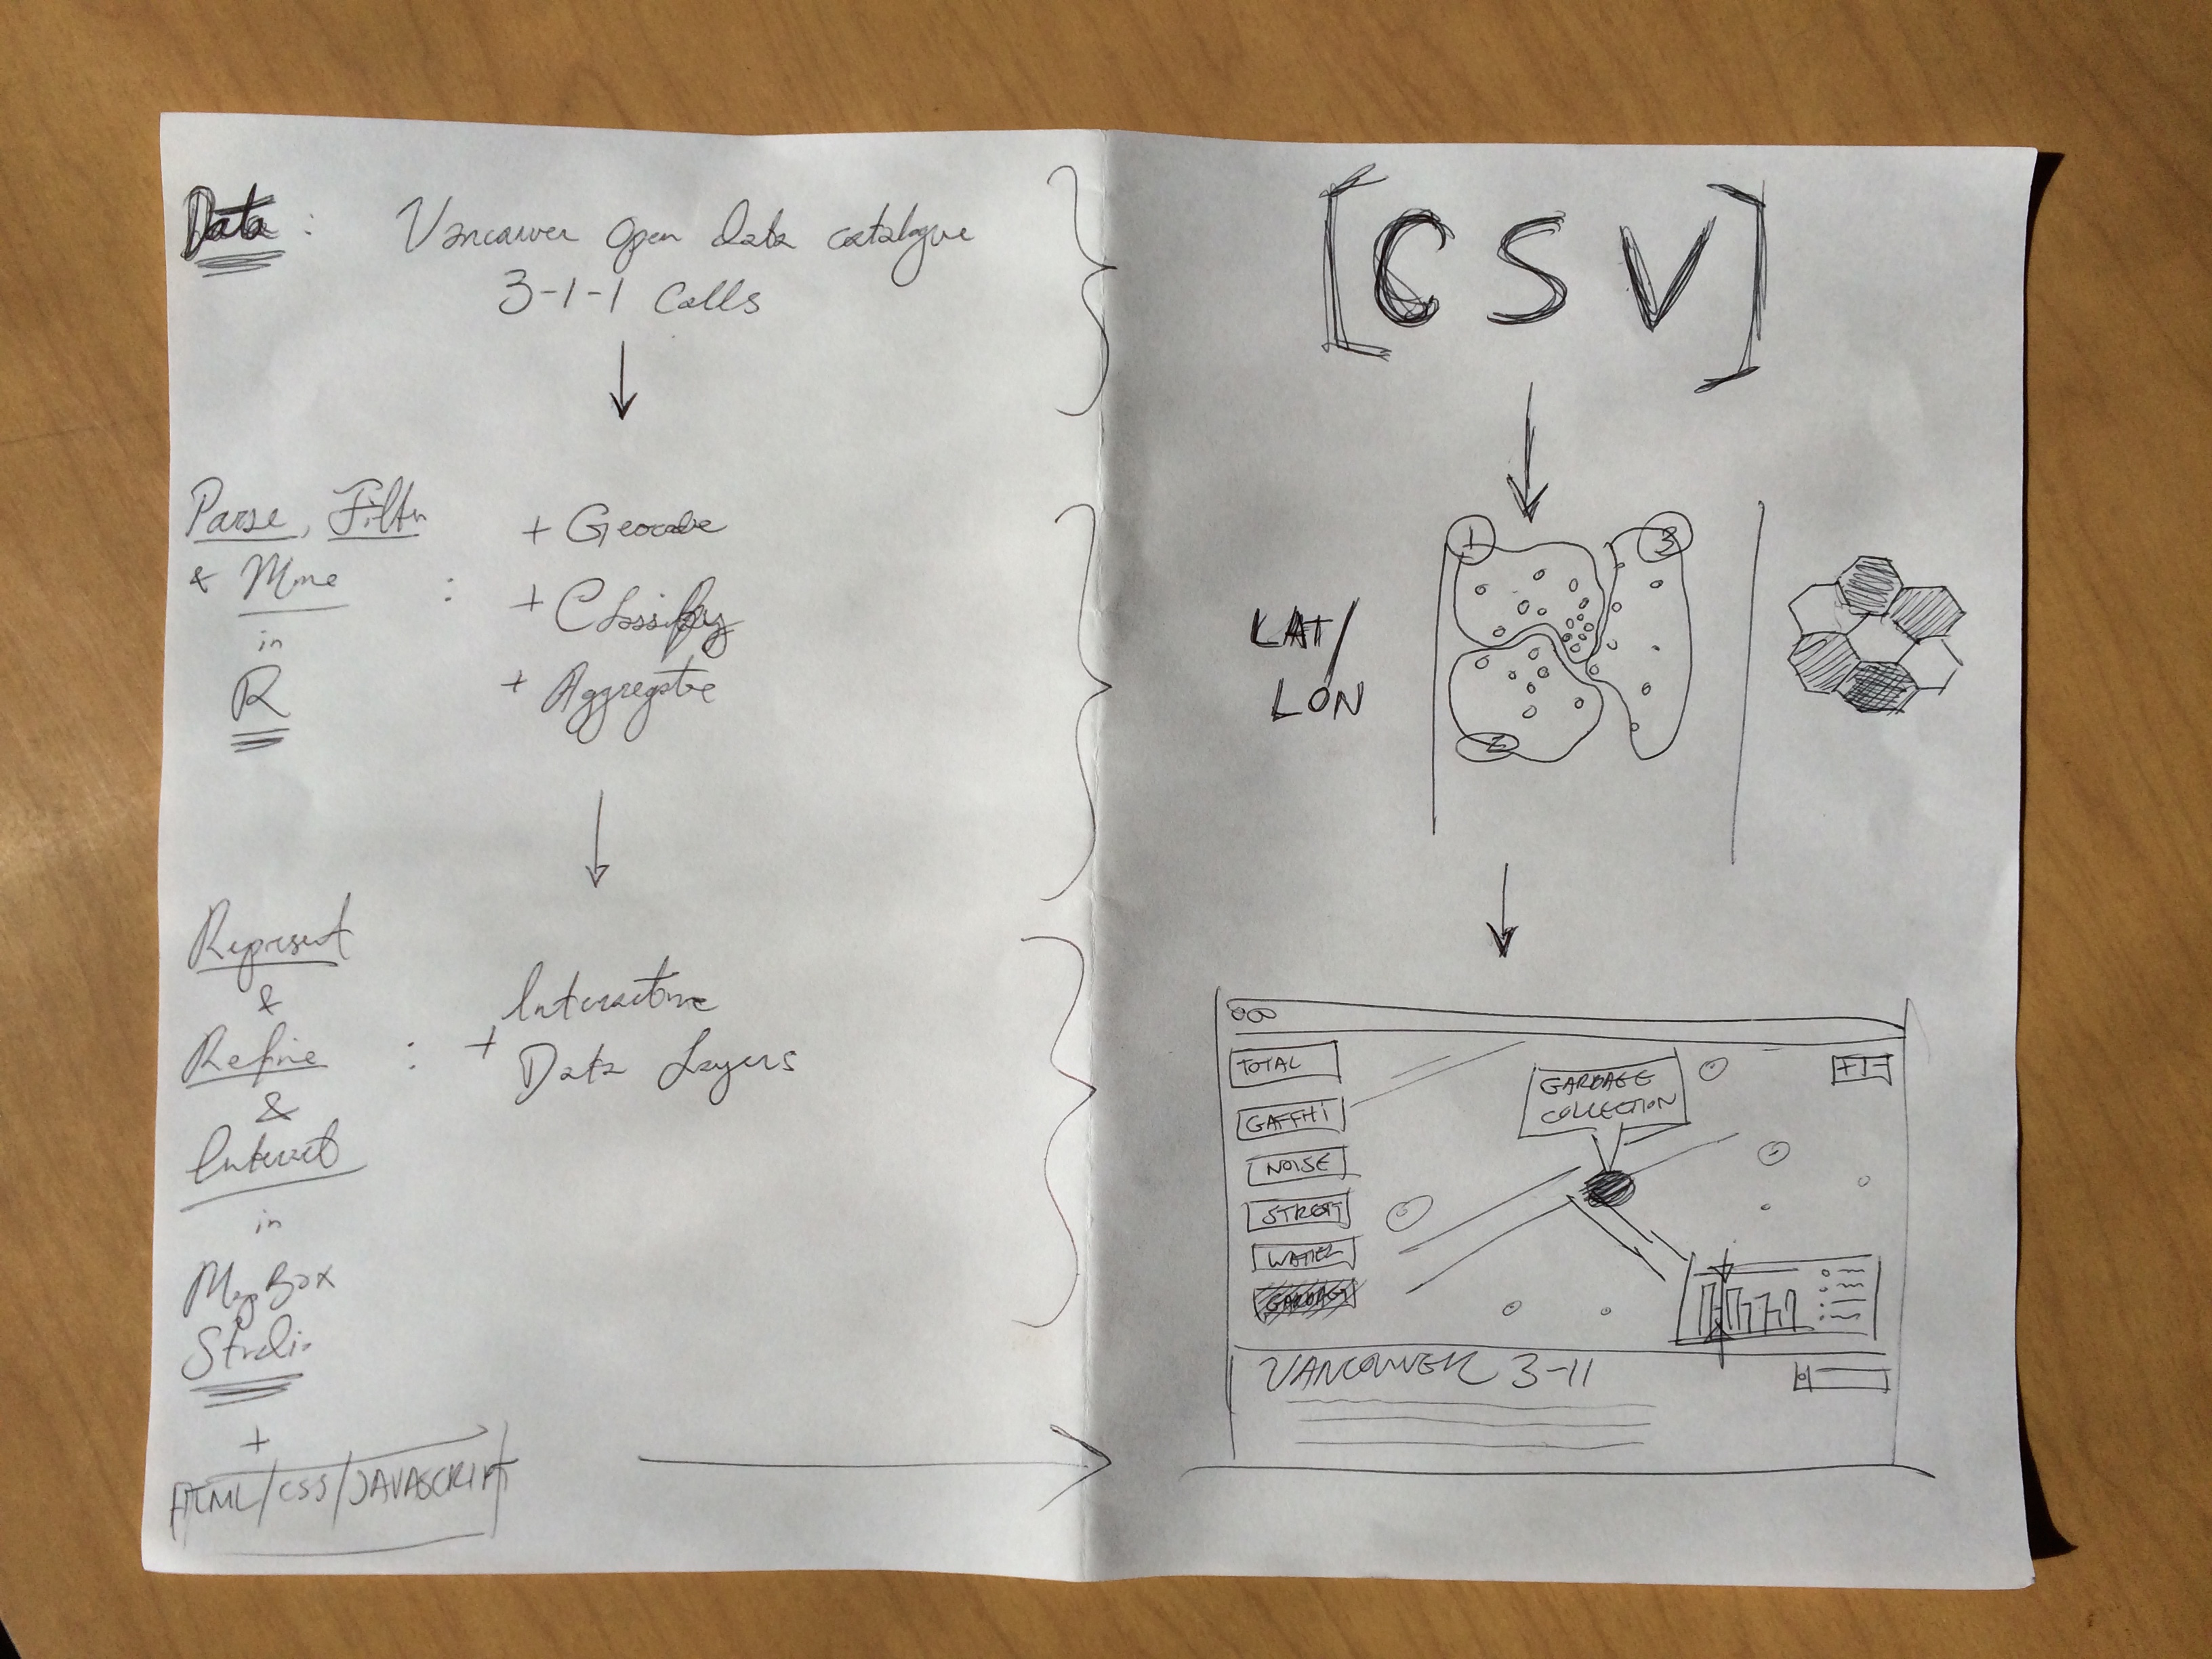 Data : Vancouver Open data catalogue
3-1-1 Calls
Parse, Filter
& Mine :
in
R
+ Geocode
+ Classify
+ Aggregate
Represent
&
Refine :
&
Interact
in
MapBox
Studio
+
HTML/CSS/JAVASCRIPT
Interactive
+ Data Layers
[CSV]
LAT/
LON
1
3
2
TOTAL
GAFFHI
NOISE
STREET
WATER
GARBAGE
GARBAGE
COLLECTION
+|-
VANCOUVER 3-11